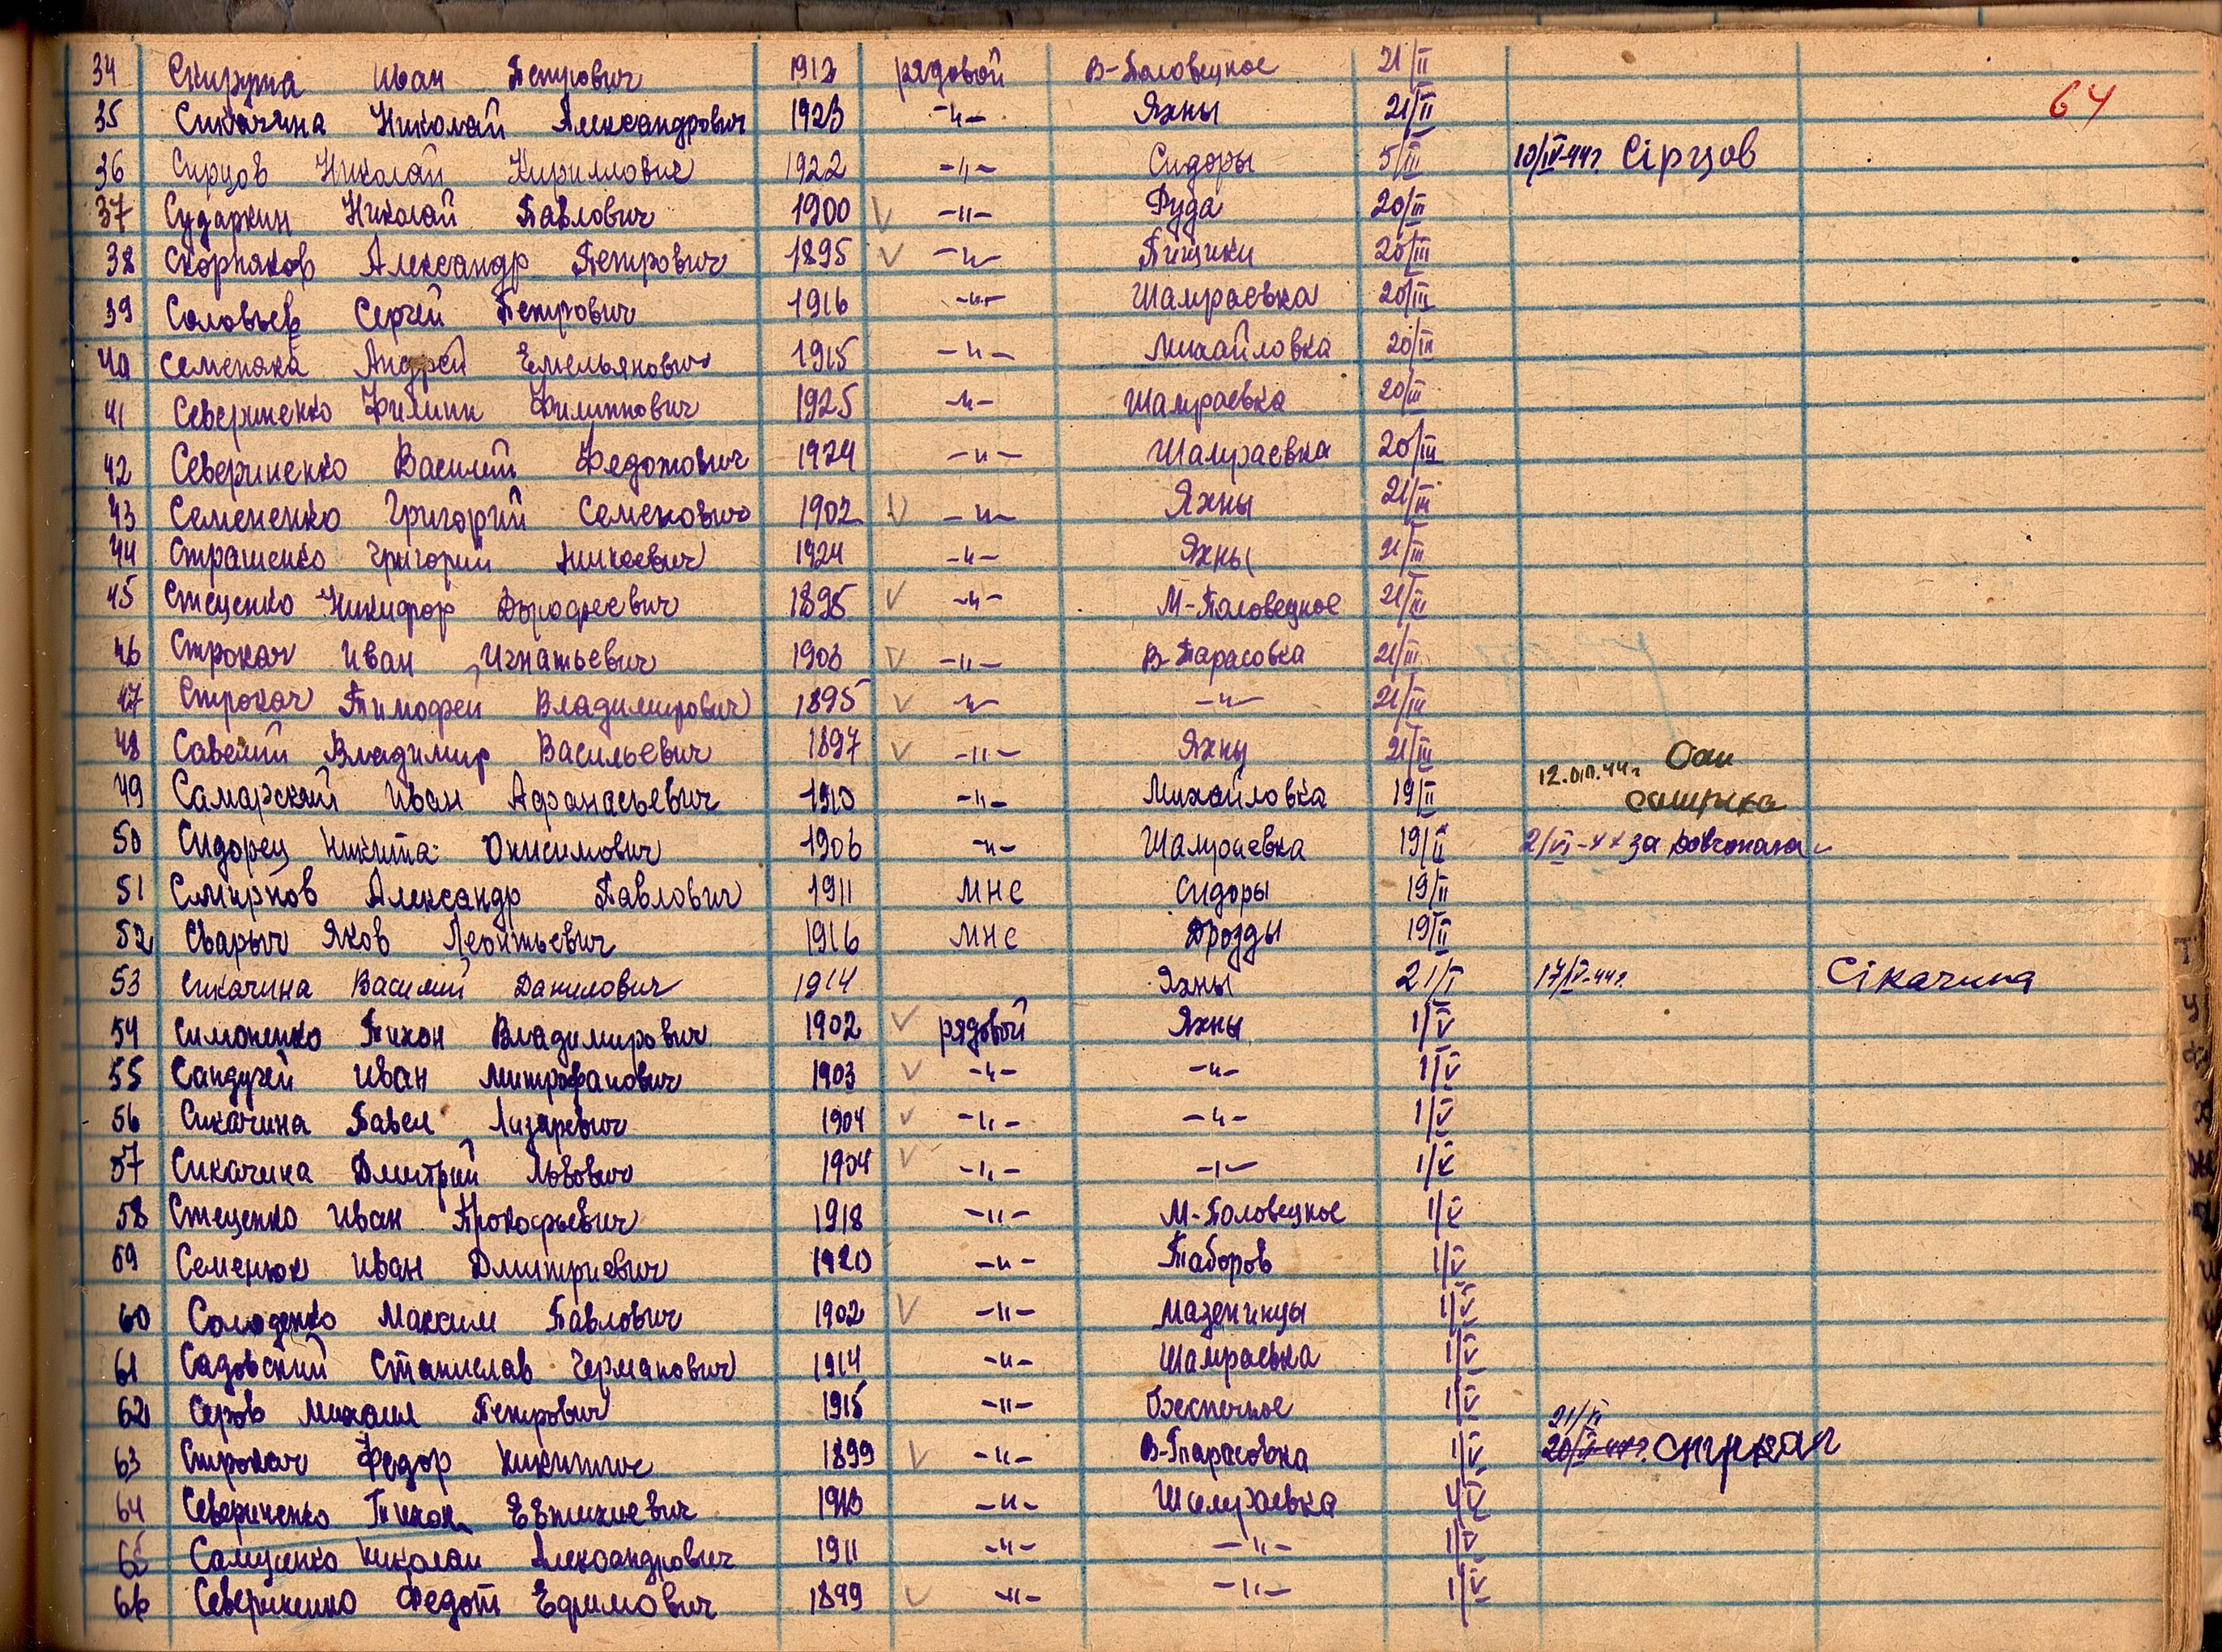 64
34 Скирута Иван Петрович 1912 рядовой В-Половецкое 21/II
35 Сикачина Николай Александрович 1923 -"- Яхны 21/II
36 Сирцов Николай Кириллович 1922 -"- Сидоры 5/III 10/IV-44г. Сірцов
37 Сударкин Николай Павлович 1900 V -"- Руда 20/III
38 Скорняков Александр Петрович 1895 V -"- Пищики 20/III
39 Соловьев Сергей Петрович 1916 -"- Шамраевка 20/III
40 Семеняка Андрей Емельянович 1915 -"- Михайловка 20/III
41 Севериненко Филипп Филиппович 1925 -"- Шамраевка 20/III
42 Севериненко Василий Федотович 1924 -"- Шамраевка 20/III
43 Семененко Григорий Семенович 1902 V -"- Яхны 21/III
44 Страшенко Григорий 1924 -"- Яхны 21/III
45 Стеценко Никифор Дорофеевич 1895 V -"- М-Половецкое 21/III
46 Строкач Иван Игнатьевич 1903 V -"- В-Тарасовка 21/III
47 Строкач Тимофей Владимирович 1895 V -"- -"- 21/III
48 Савелий Владимир Васильевич 1897 V -"- Яхны 21/III
49 Самарский Иван Афанасьевич 1910 -"- Михайловка 19/II 12.VIII.44г.
50 Сидорец Никита Онисимович 1906 -"- Шамраевка 19/II 2/VI-44 за
51 Смирнов Александр Павлович 1911 МНС Сидоры 19/II
52 Сварыч Яков Леонтьевич 1916 МНС Дрозды 19/II
53 Сикачина Василий Данилович 1914 Яхны 21/I 17/IV-44г. Сікачина
54 Симоненко Тихон Владимирович 1902 V рядовой Яхны 1/V
55 Сандугей Иван Митрофанович 1903 V -"- -"- 1/V
56 Сикачина Павел Лазаревич 1904 V -"- -"- 1/V
57 Сикачина Дмитрий Львович 1904 V -"- -"- 1/V
58 Стеценко Иван Прокофьевич 1918 -"- М-Половецкое 1/V
59 Семенюк Иван Дмитриевич 1920 -"- Таборов 1/V
60 Солоденко Максим Павлович 1902 V -"- Мазепинцы 1/V
61 Садовский Станислав Германович 1914 -"- Шамраевка 1/V
62 Серов Михаил Петрович 1915 -"- 1/V
21/VI
63 Строкач Федор Никитич 1899 V -"- В-Тарасовка 1/V 20/V-44г.
64 Севериненко Тихон Евтихиевич 1913 -"- Шамраевка 1/V
65 Самусенко Николай Александрович 1911 -"- -"- 1/V
66 Севериненко Федот Ефимович 1899 V -"- -"- 1/V